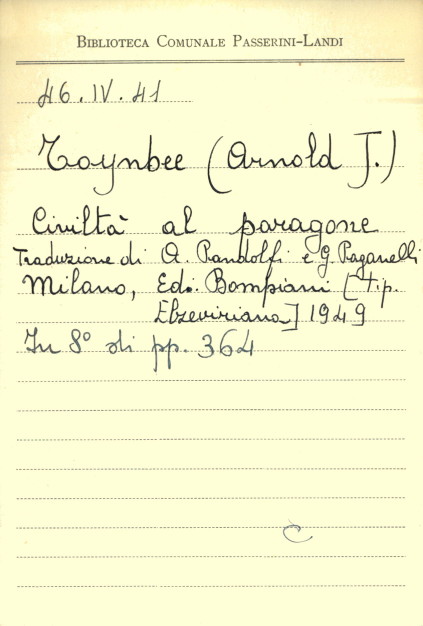 BIBLIOTECA COMUNALE PASSERINI-LANDI
46.IV.41
Toynbee (Arnold J.)
Civiltà al paragone
Traduzione di A. Pandolfi e G. Paganelli
Milano, Ed. Bompiani [tip.
Elzeviriana] 1949
In 8° di pp. 364
C